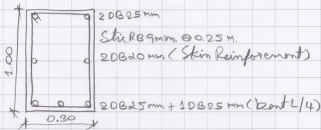 2DB25mm
Stir RB9mm @0.25 M.
2DB20mm (Skin Reinforcement)
2DB25mm + 1DB25mm (bent L/4)
1.00
0.30